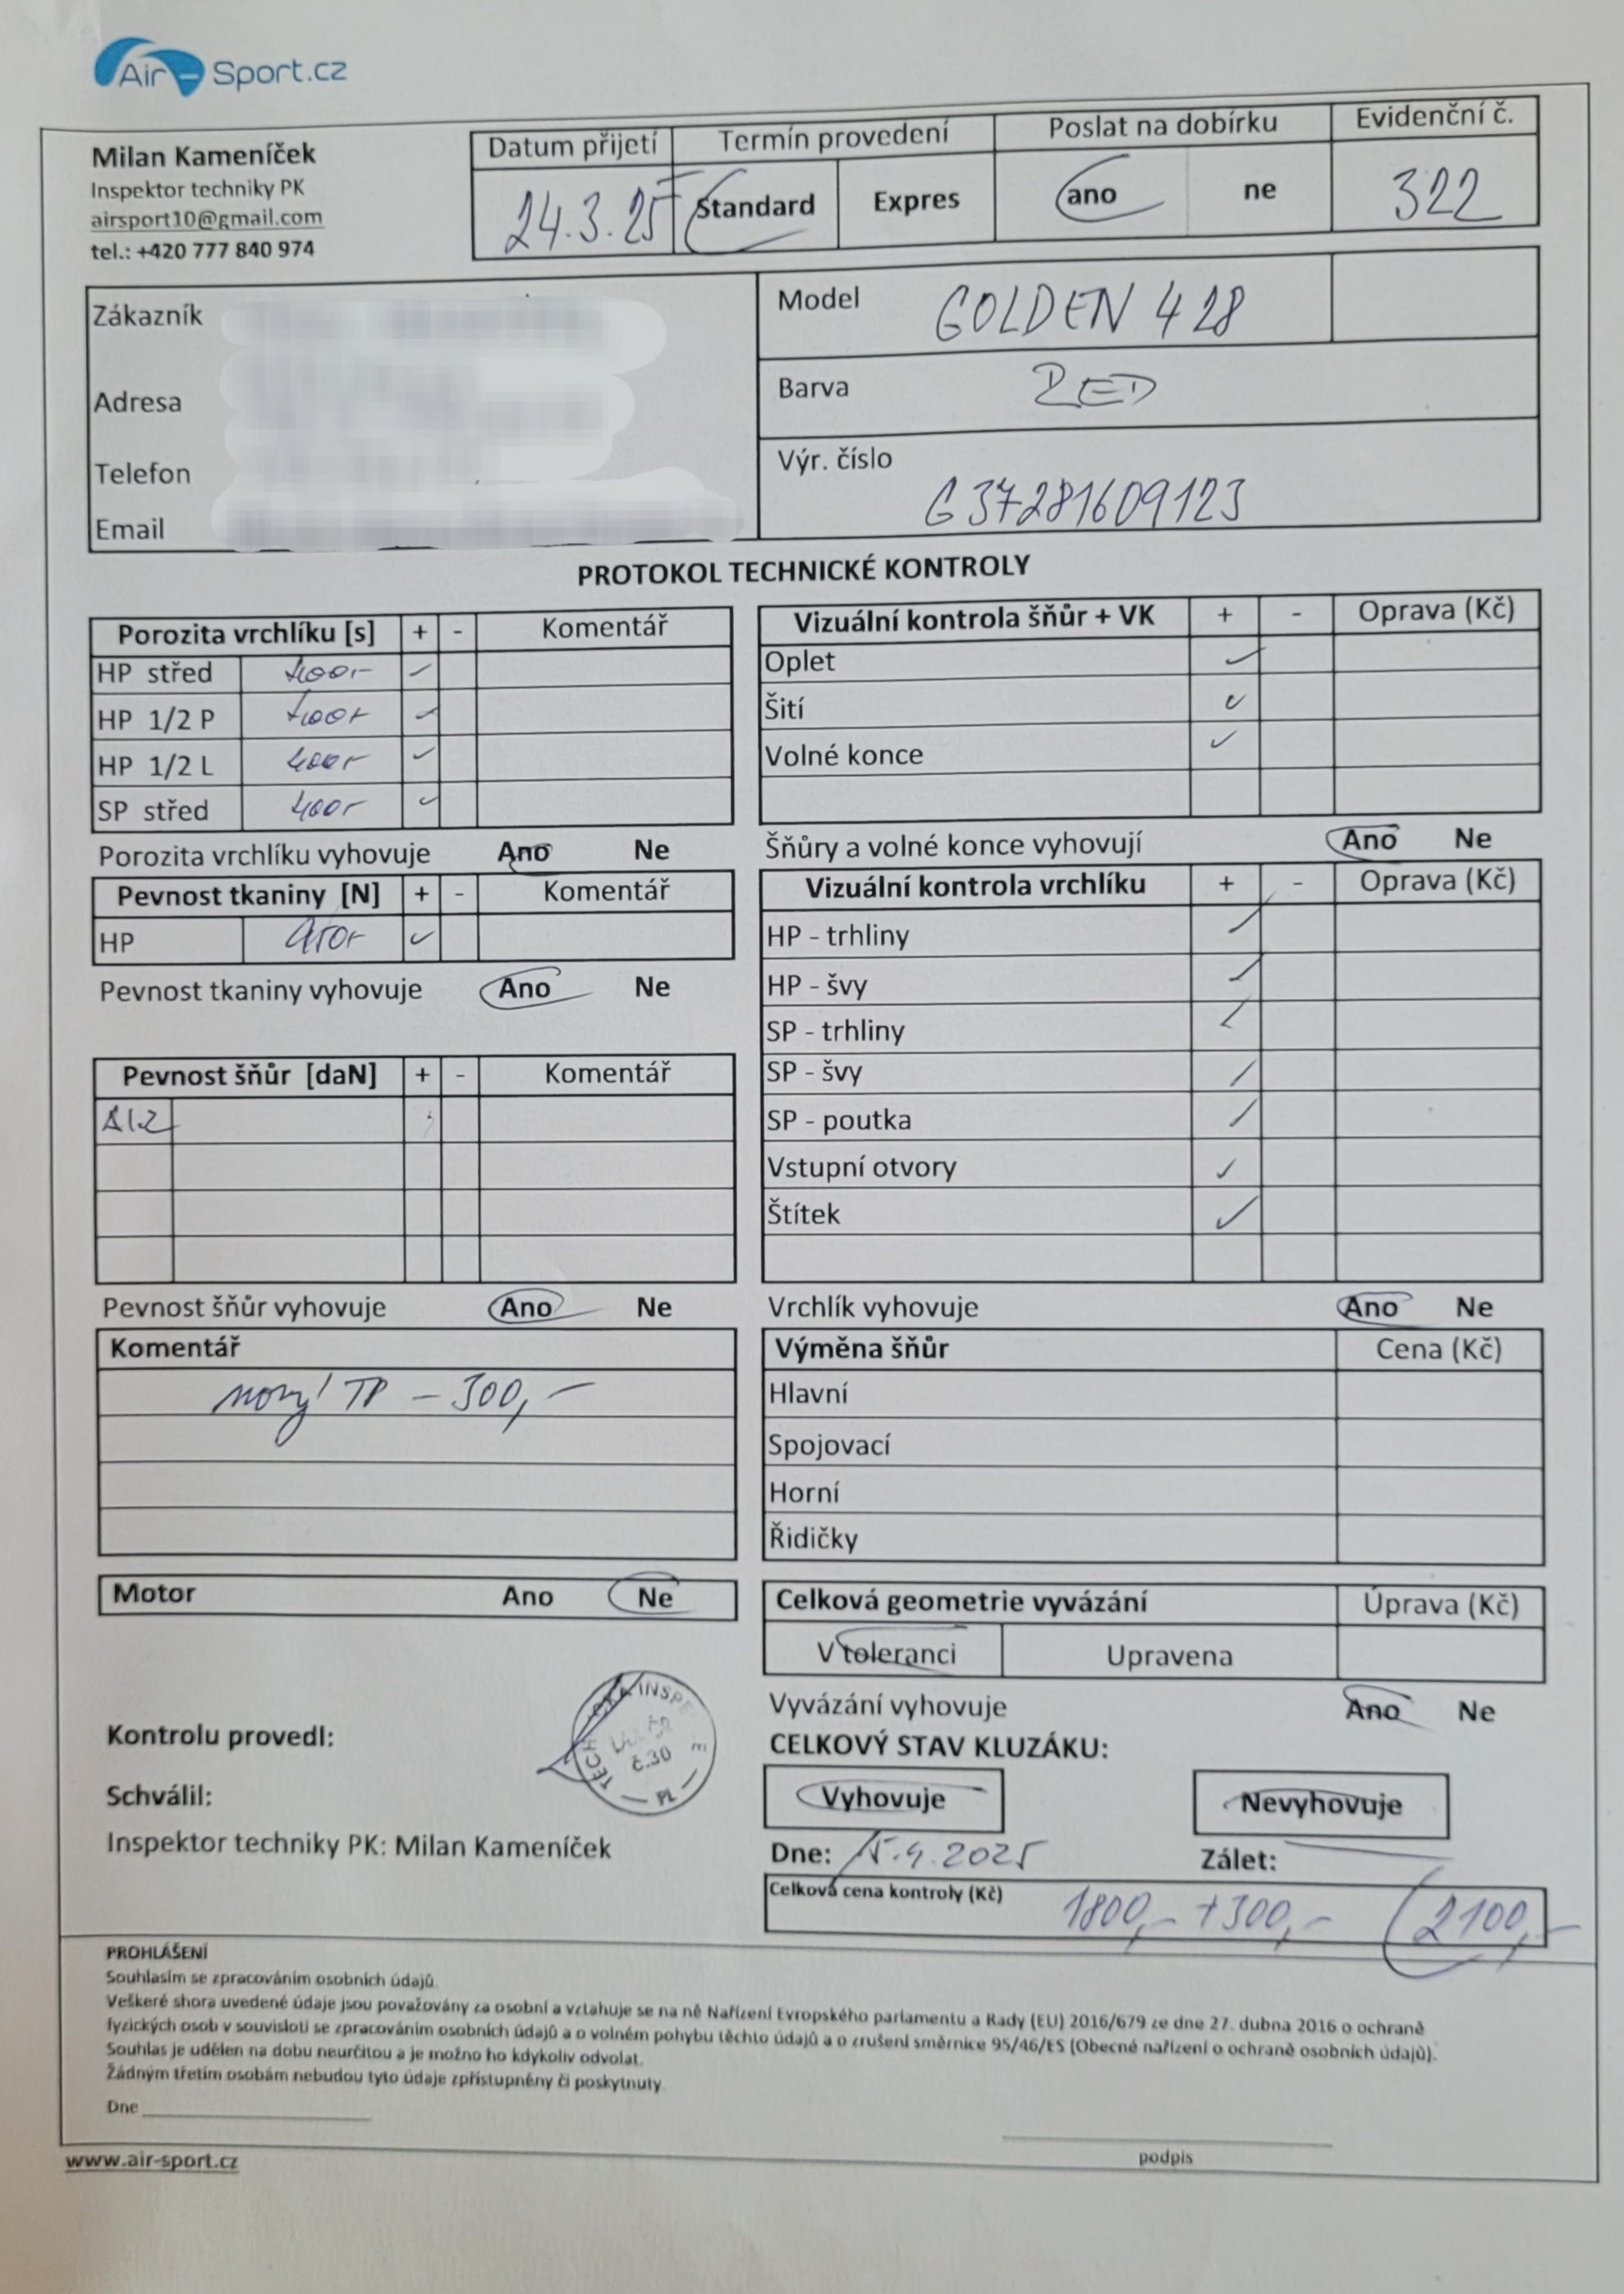 Air-Sport.cz
Milan Kameníček
Inspektor techniky PK
airsport10@gmail.com
tel.: +420 777 840 974
Datum přijetí Termín provedení Poslat na dobírku Evidenční č.
24.3.25 Standard Expres ano ne 322
Zákazník
Adresa
Telefon
Email
Model GOLDEN 4 28
Barva RED
Výr. číslo G37281609123
PROTOKOL TECHNICKÉ KONTROLY
Porozita vrchlíku [s] + - Komentář
HP střed
HP 1/2 P
HP 1/2 L
SP střed
Porozita vrchlíku vyhovuje Ano Ne
Pevnost tkaniny [N] + - Komentář
HP
Pevnost tkaniny vyhovuje Ano Ne
Pevnost šňůr [daN] + - Komentář
Pevnost šňůr vyhovuje Ano Ne
Komentář
nový TP - 300,-
Motor Ano Ne
Kontrolu provedl:
Schválil:
Inspektor techniky PK: Milan Kameníček
č.30
PL
Vizuální kontrola šňůr + VK + - Oprava (Kč)
Oplet
Šití
Volné konce
Šňůry a volné konce vyhovují Ano Ne
Vizuální kontrola vrchlíku + - Oprava (Kč)
HP - trhliny
HP - švy
SP - trhliny
SP - švy
SP - poutka
Vstupní otvory
Štítek
Vrchlík vyhovuje Ano Ne
Výměna šňůr Cena (Kč)
Hlavní
Spojovací
Horní
Řidičky
Celková geometrie vyvázání Úprava (Kč)
V toleranci Upravena
Vyvázání vyhovuje Ano Ne
CELKOVÝ STAV KLUZÁKU:
Vyhovuje Nevyhovuje
Dne: 15.4.2025 Zálet:
Celková cena kontroly (Kč) 1800,- +300,- 2100,-
PROHLÁŠENÍ
Souhlasím se zpracováním osobních údajů.
Veškeré shora uvedené údaje jsou považovány za osobní a vztahuje se na ně Nařízení Evropského parlamentu a Rady (EU) 2016/679 ze dne 27. dubna 2016 o ochraně
fyzických osob v souvisloti se zpracováním osobních údajů a o volném pohybu těchto údajů a o zrušení směrnice 95/46/ES (Obecné nařízení o ochraně osobních údajů).
Souhlas je udělen na dobu neurčitou a je možno ho kdykoliv odvolat.
Žádným třetím osobám nebudou tyto údaje zpřístupněny či poskytnuty.
Dne
podpis
www.air-sport.cz